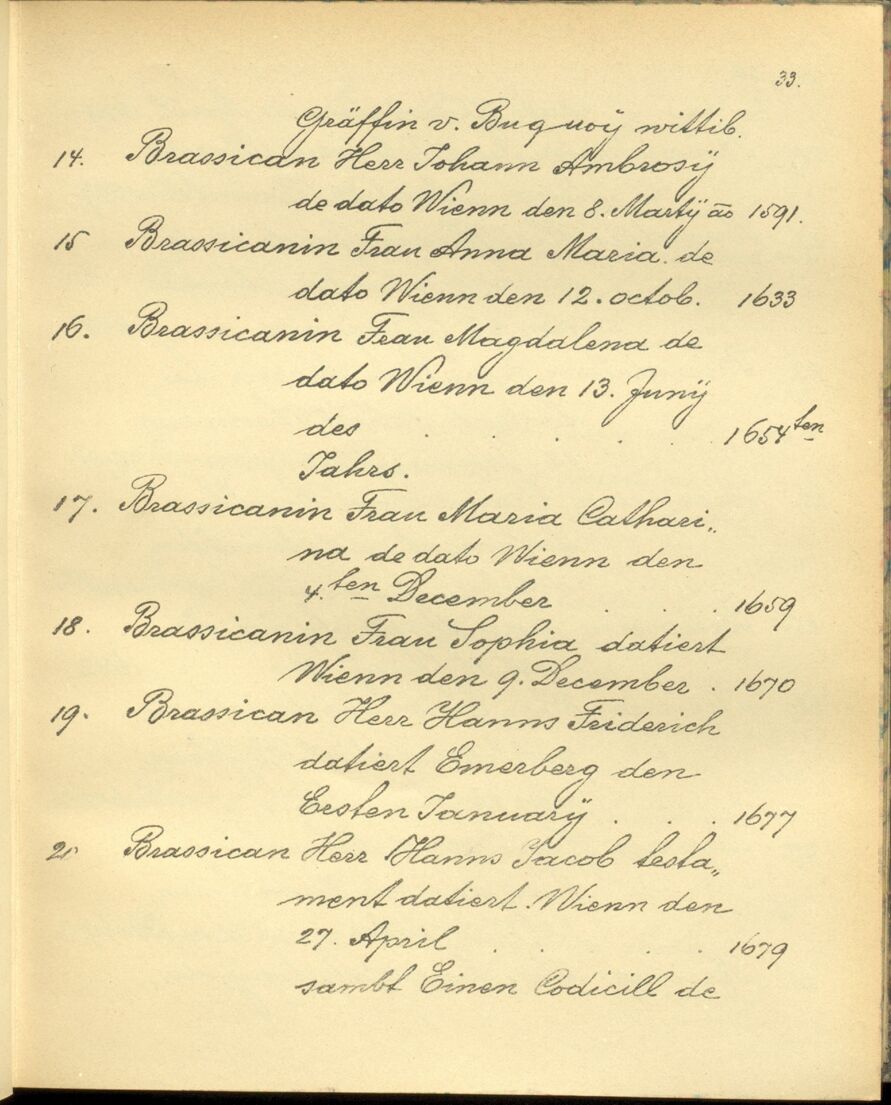 33.
Gräffin v. Buquoÿ wittib.
14. Brassican Herr Johann Ambrosÿ
de dato Wienn den 8. Martÿ āo 1591.
15 Brassicanin Frau Anna Maria. de
dato Wienn den 12. octob. 1633
16. Brassicanin Frau Magdalena de
dato Wienn den 13. Junÿ
des . . . . 1654ten
Jahrs.
17. Brassicanin Frau Maria Cathari„
na de dato Wienn den
4.ten December . . . 1659
18. Brassicanin Frau Sophia datiert
Wienn den 9. December . 1670
19. Brassican Herr Hanns Friderich
datiert Emerberg den
Ersten Januarÿ . . . 1677
20 Brassican Herr Hanns Jacob testa„
ment datiert. Wienn den
27. April . . . . 1679
sambt Einen Codicill de